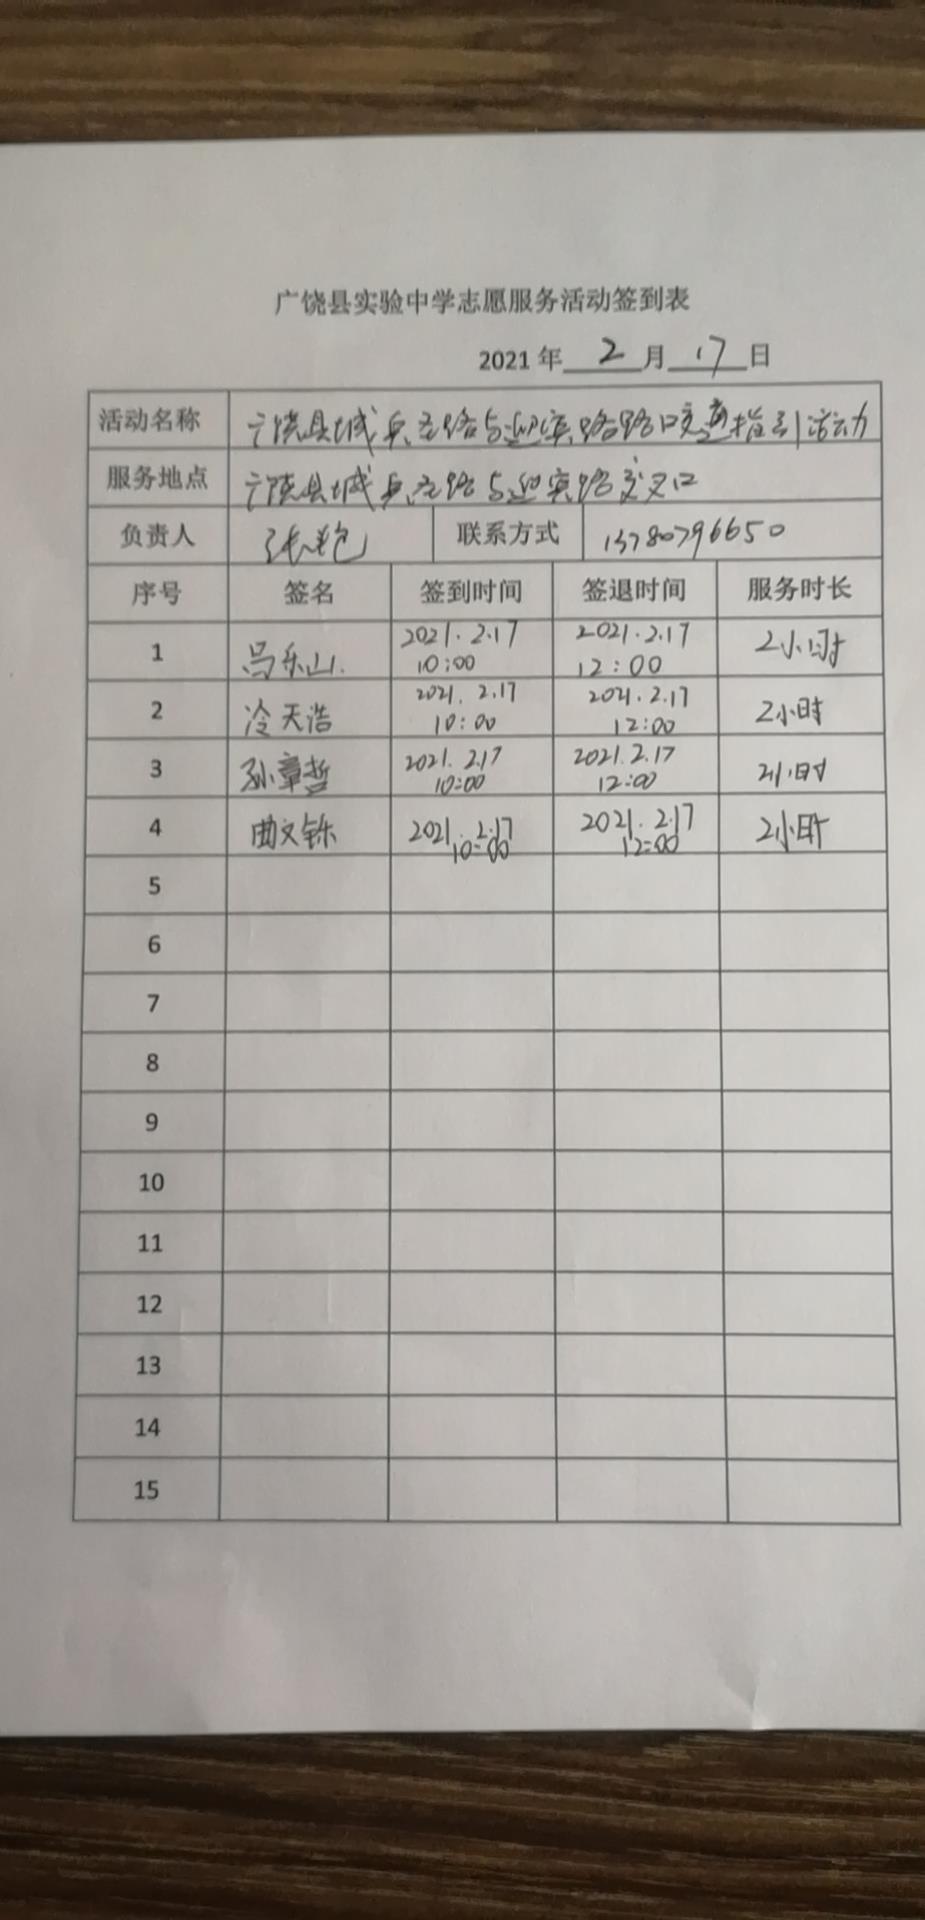 广饶县实验中学志愿服务活动签到表
2021 年 2 月 17 日
活动名称 广饶县城兵圣路与迎宾路路口交通指引活动
服务地点 广饶县城兵圣路与迎宾路交叉口
负责人 张艳 联系方式 13780796650
序号 签名 签到时间 签退时间 服务时长
1 冯乐山 2021.2.17 10:00 2021.2.17 12:00 2小时
2 冷天浩 2021.2.17 10:00 2021.2.17 12:00 2小时
3 孙章哲 2021.2.17 10:00 2021.2.17 12:00 2小时
4 曲文铄 2021.2.17 10:00 2021.2.17 12:00 2小时
5
6
7
8
9
10
11
12
13
14
15